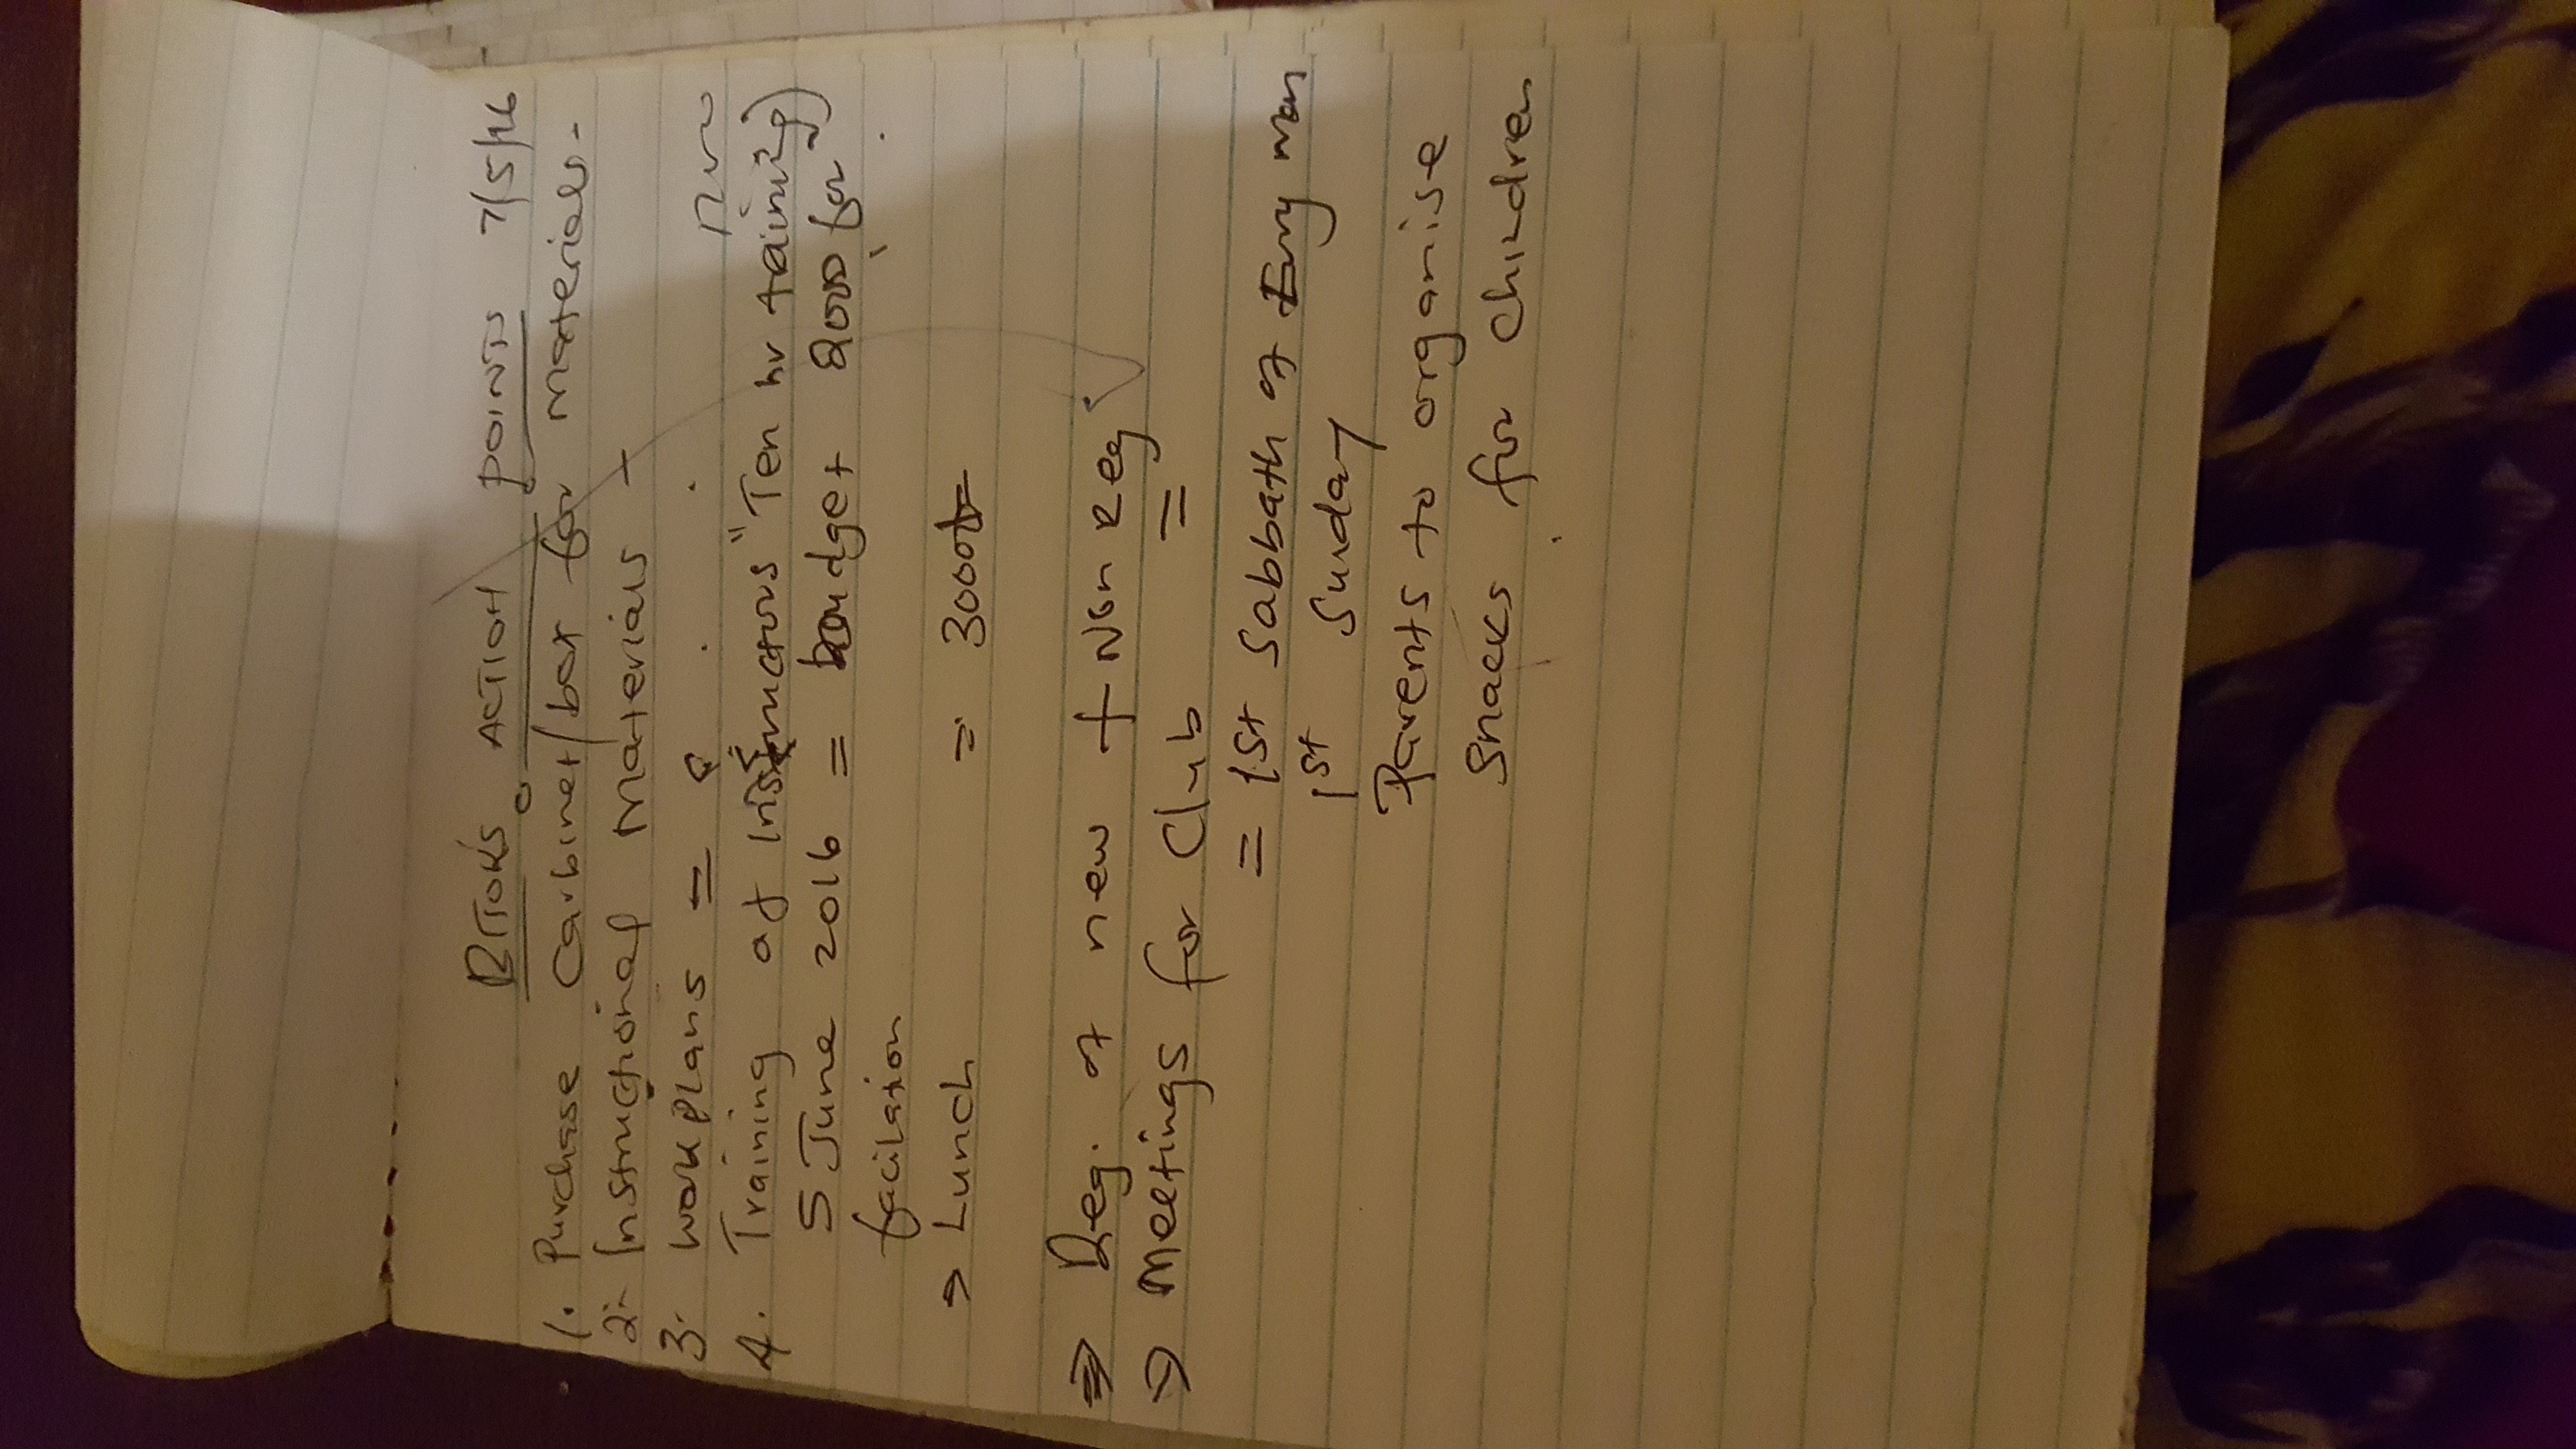 ACTION POINTS 7/5/16
1. Purchase Carbinet/box for Materials -
2. Instructional Materials -
3. Workplans =
4. Training of Instructors "Ten hr training)
5 June 2016 = budget 2000 for
facilation
⇒ Lunch = 3000/=
⇒ Reg. of new + Non Reg
⇒ Meetings for Club =
= 1st Sabbath of Every Mon
1st Sunday
Parents to organise
Snacks for Children